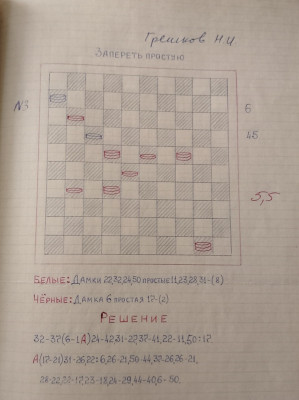 Грешков Н.И.
ЗАПЕРЕТЬ ПРОСТУЮ
N3
6
45
5,5
БЕЛЫЕ: ДАМКИ 22,32,24,50 ПРОСТЫЕ 11,23,28,31-(8)
ЧЁРНЫЕ: ДАМКА 6 ПРОСТАЯ 17-(2)
РЕШЕНИЕ
32-37(6-1A)24-42,31-27,37-41,22-11,50:17.
A(17-21)31-26,22:6,26-21,50-44,37-26,26-21,
28-22,22-17,23-18,24-29,44-40,6-50.